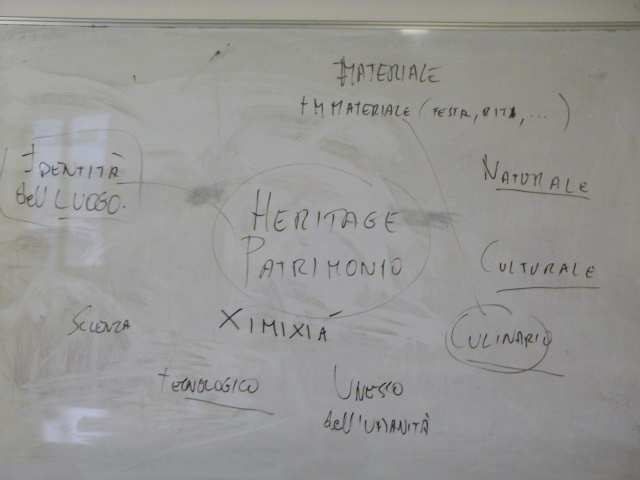 MATERIALE
IMMATERIALE (FESTA, RITI, ...)
IDENTITÀ
dell LUOGO.
NATURALE
HERITAGE
PATRIMONIO
CULTURALE
SCIENZA
XIMIXIÁ
CULINARIO
TECNOLOGICO
UNESCO
dell'UMANITÀ